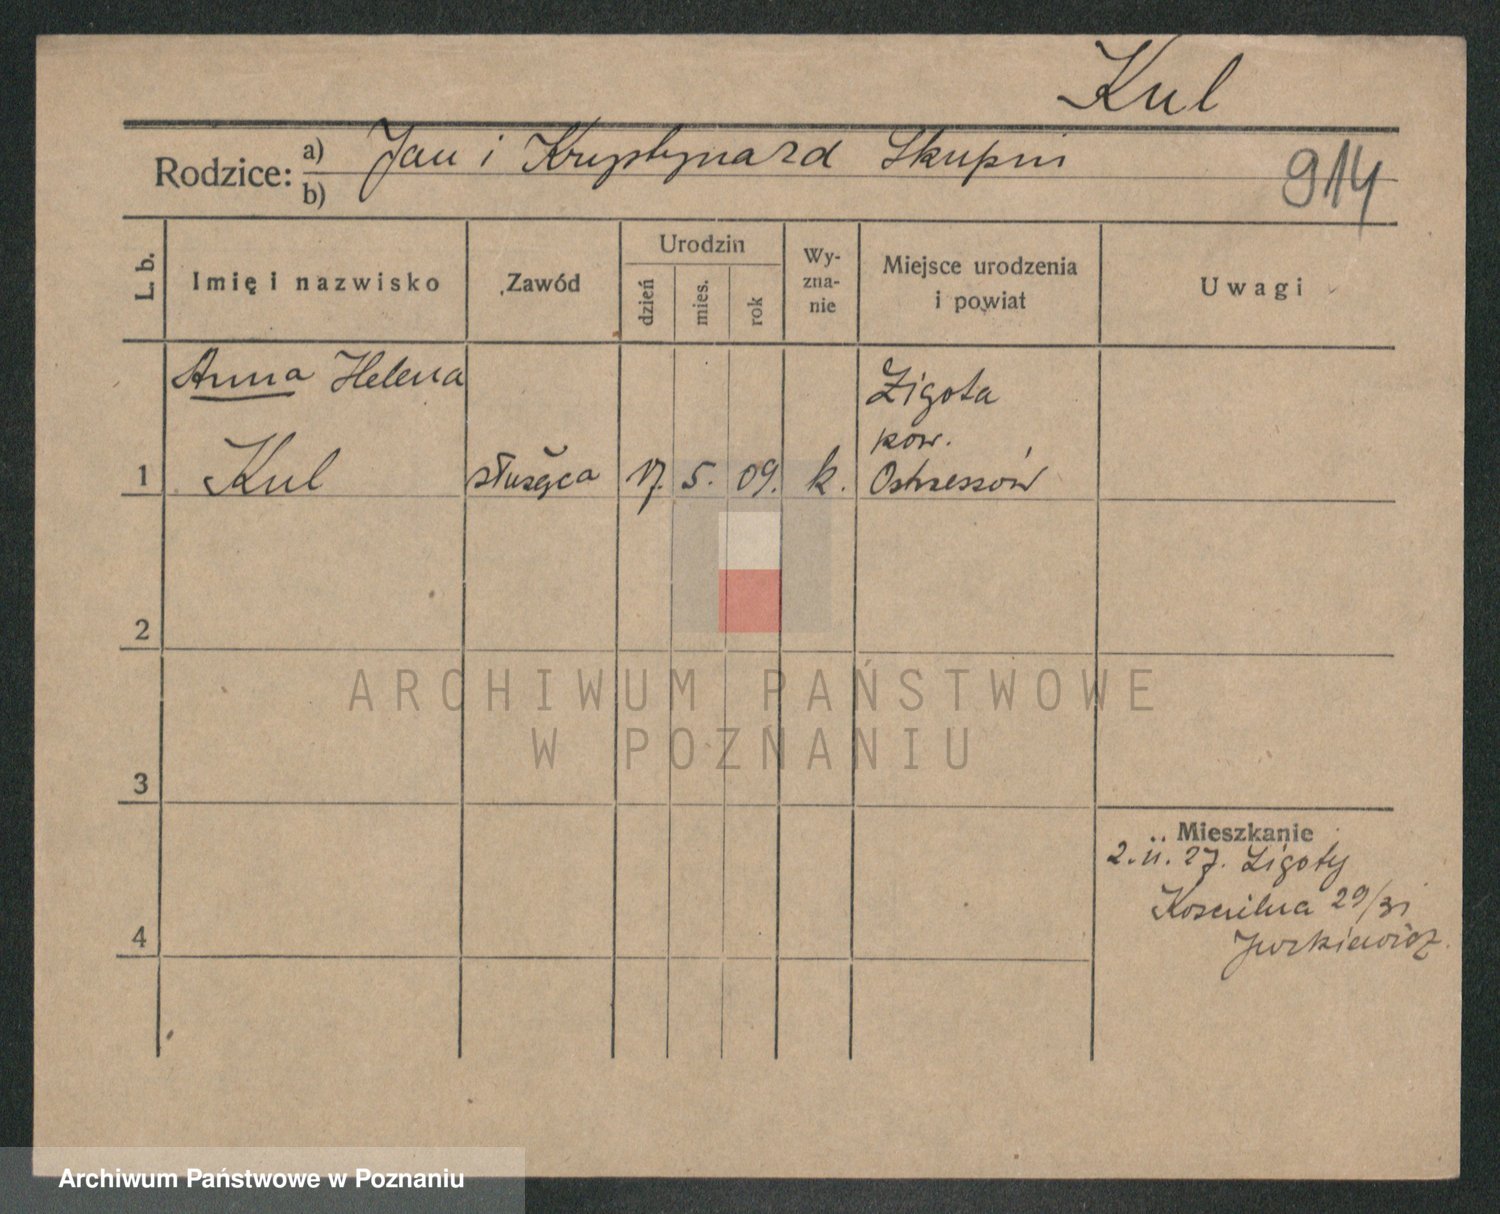 Kul
Rodzice: a) Jan i Krystyna zd Skupin
b)
914
L. b. Imię i nazwisko Zawód Urodzin dzień mies. rok Wy-zna-nie Miejsce urodzenia i powiat Uwagi
Anna Helena
1 Kul służąca 17. 5. 09. k. Ligota
pow.
Ostrzeszów
2
3
4
Mieszkanie
2. 11. 27. Ligoty
Kościelna 29/31
Jurkiewicz.
ARCHIWUM PAŃSTWOWE
W POZNANIU
Archiwum Państwowe w Poznaniu